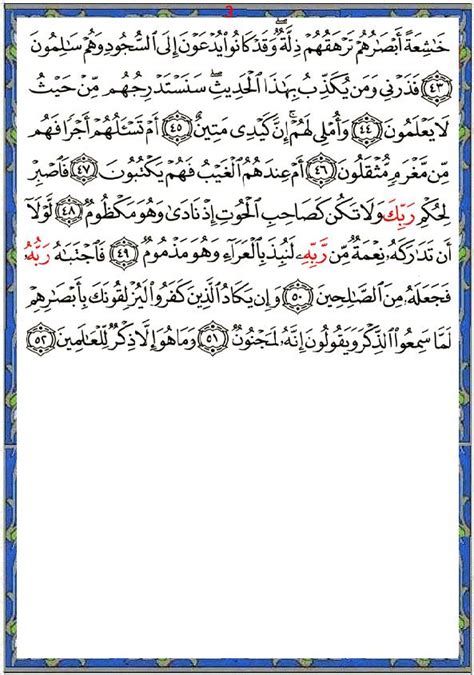 3
خَٰشِعَةً أَبْصَٰرُهُمْ تَرْهَقُهُمْ ذِلَّةٌۖ وَقَدْ كَانُوا۟ يُدْعَوْنَ إِلَى ٱلسُّجُودِ وَهُمْ سَٰلِمُونَ
﴿٤٣﴾ فَذَرْنِى وَمَن يُكَذِّبُ بِهَٰذَا ٱلْحَدِيثِۖ سَنَسْتَدْرِجُهُم مِّنْ حَيْثُ
لَا يَعْلَمُونَ ﴿٤٤﴾ وَأُمْلِى لَهُمْۚ إِنَّ كَيْدِى مَتِينٌ ﴿٤٥﴾ أَمْ تَسْـَٔلُهُمْ أَجْرًا فَهُم
مِّن مَّغْرَمٍ مُّثْقَلُونَ ﴿٤٦﴾ أَمْ عِندَهُمُ ٱلْغَيْبُ فَهُمْ يَكْتُبُونَ ﴿٤٧﴾ فَٱصْبِرْ
لِحُكْمِ رَبِّكَ وَلَا تَكُن كَصَاحِبِ ٱلْحُوتِ إِذْ نَادَىٰ وَهُوَ مَكْظُومٌ ﴿٤٨﴾ لَّوْلَآ
أَن تَدَٰرَكَهُۥ نِعْمَةٌ مِّن رَّبِّهِۦ لَنُبِذَ بِٱلْعَرَآءِ وَهُوَ مَذْمُومٌ ﴿٤٩﴾ فَٱجْتَبَٰهُ رَبُّهُۥ
فَجَعَلَهُۥ مِنَ ٱلصَّٰلِحِينَ ﴿٥٠﴾ وَإِن يَكَادُ ٱلَّذِينَ كَفَرُوا۟ لَيُزْلِقُونَكَ بِأَبْصَٰرِهِمْ
لَمَّا سَمِعُوا۟ ٱلذِّكْرَ وَيَقُولُونَ إِنَّهُۥ لَمَجْنُونٌ ﴿٥١﴾ وَمَا هُوَ إِلَّا ذِكْرٌ لِّلْعَٰلَمِينَ ﴿٥٢﴾